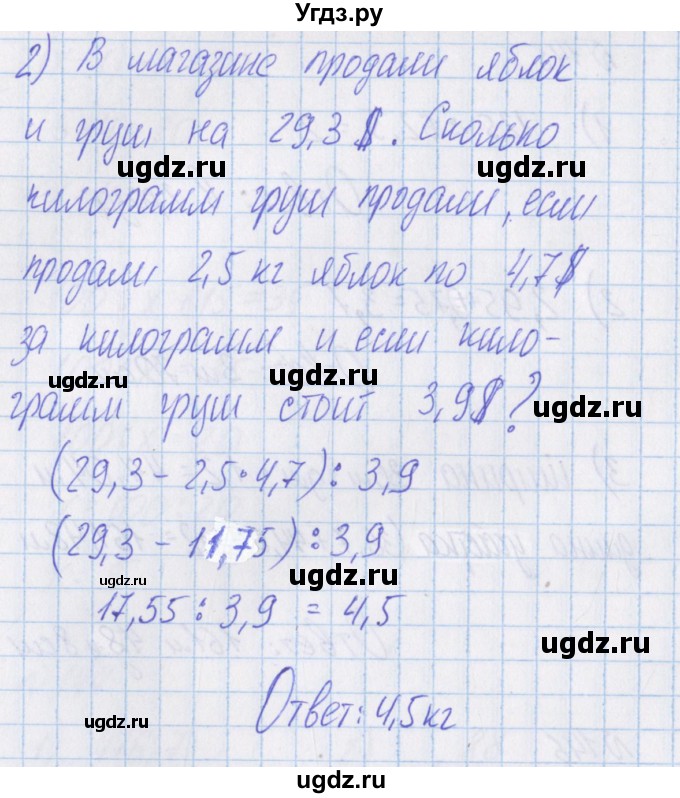 Угдз.ру
2) В магазине продали яблок
и груш на 29,3 $. Сколько
ugdz.ru ugdz.ru
килограмм груш продали, если
ugdz.ru
продали 2,5 кг яблок по 4,7$
за килограмм и если кило-
ugdz.ru ugdz.ru
грамм груш стоит 3,9$?
ugdz.ru
(29,3 - 2,5·4,7) : 3,9
ugdz.ru
(29,3 - 11,75) : 3,9
ugdz.ru
17,55 : 3,9 = 4,5
ugdz.ru
Ответ: 4,5 кг
ugdz.ru
ugdz.ru